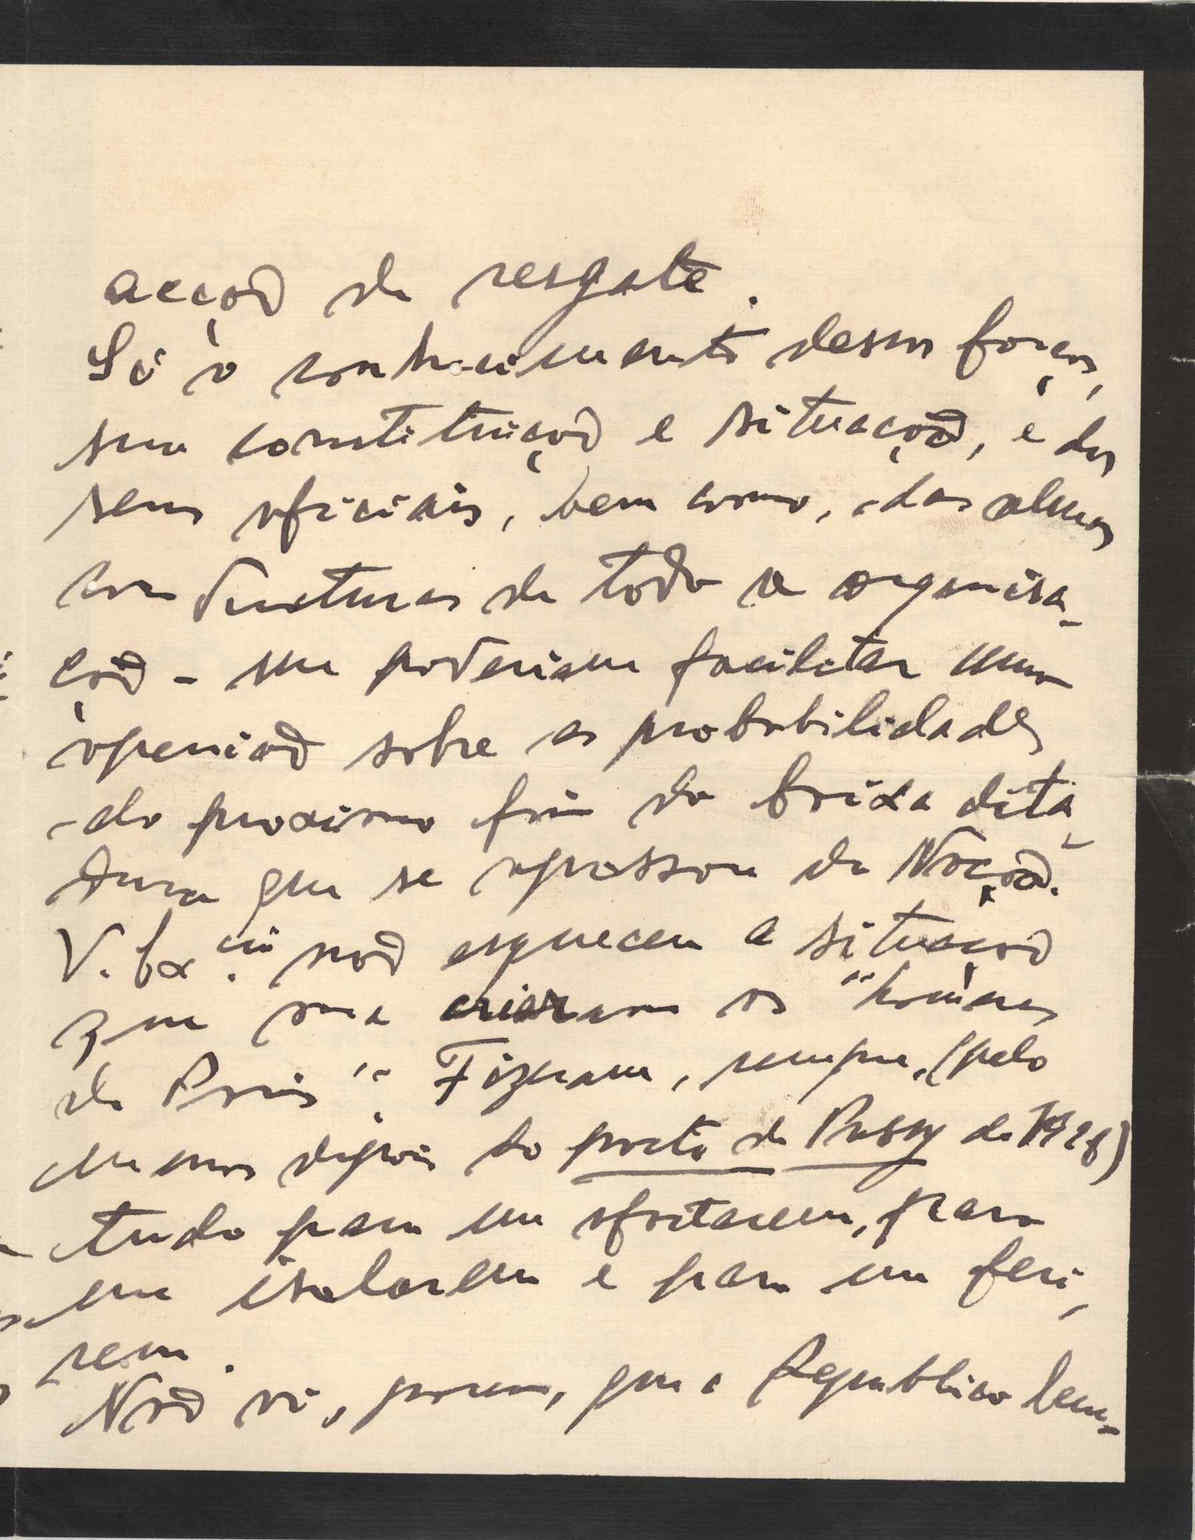 acção de resgate.
Só o conhecimento dessas forças,
sua constituição e situação, e dos
seus oficiais, bem como, das almas
conductoras de toda a organisa-
ção - me poderiam facilitar uma
opinião sobre as probabilidades
do proximo fim da baixa dita-
dura que se apossou da Nação.
V. Ex.cia não esquecem a situação
que me criaram os "homens
de Paris". Fizeram, sempre, (pelo
menos depois do pacto de Passy de 1928)
tudo para me afastarem, para
me isolarem e para me feri-
rem.
Não vi, porem, que a Republica